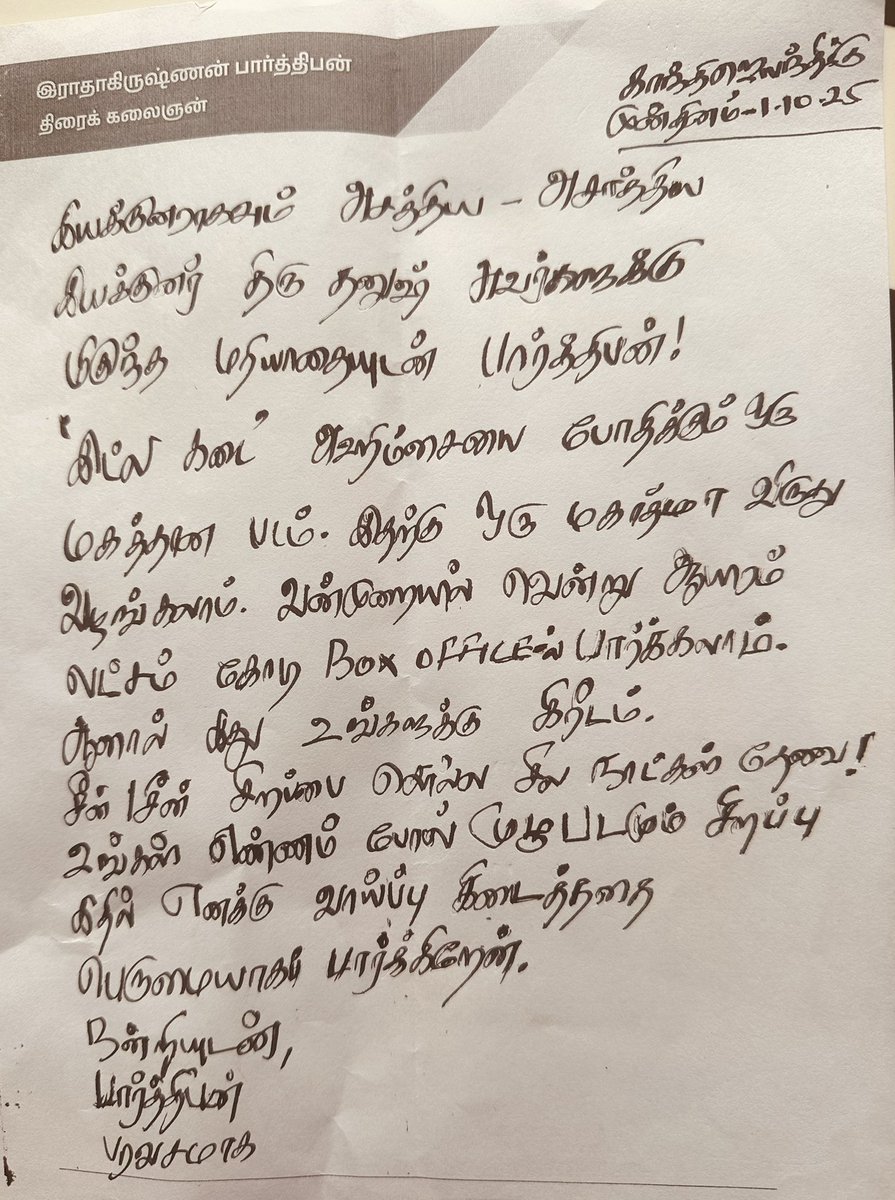 இராதாகிருஷ்ணன் பார்த்திபன்
திரைக் கலைஞன்
காந்திஜெயந்திக்கு
முன்தினம்-1-10-25
இயக்குனராகவும் அசத்திய - அசாத்திய
இயக்குனர் திரு தனுஷ் அவர்களுக்கு
மிகுந்த மரியாதையுடன் பார்த்திபன்!
'இட்லி கடை' அஹிம்சையை போதிக்கும் ஒரு
மகத்தான படம். இதற்கு ஒரு மகாத்மா விருது
வழங்கலாம். வன்முறையில் வென்று ஆயிரம்
லட்சம் கோடி BOX OFFICEல் பார்க்கலாம்.
ஆனால் இது உங்களுக்கு கிரீடம்.
சீன் சீன் சிறப்பை சொல்ல சில நாட்கள் தேவை!
உங்கள் எண்ணம் போல் முழுபடமும் சிறப்பு
இதில் எனக்கு வாய்ப்பு கிடைத்ததை
பெருமையாக பார்க்கிறேன்.
நன்றியுடன்,
பார்த்திபன்
பரவசமாக